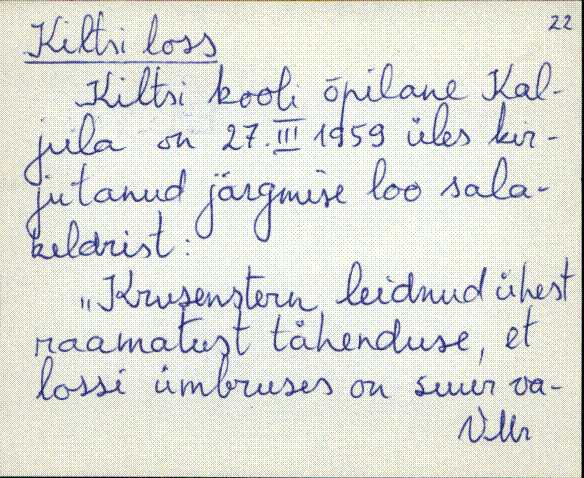 22
Kiltsi loss
Kiltsi kooli õpilane Kal-
jula on 27. III 1959 üles kir-
jutanud järgmise loo sala-
keldrist:
„Krusenstern leidnud ühest
raamatust tähenduse, et
lossi ümbruses on suur va-